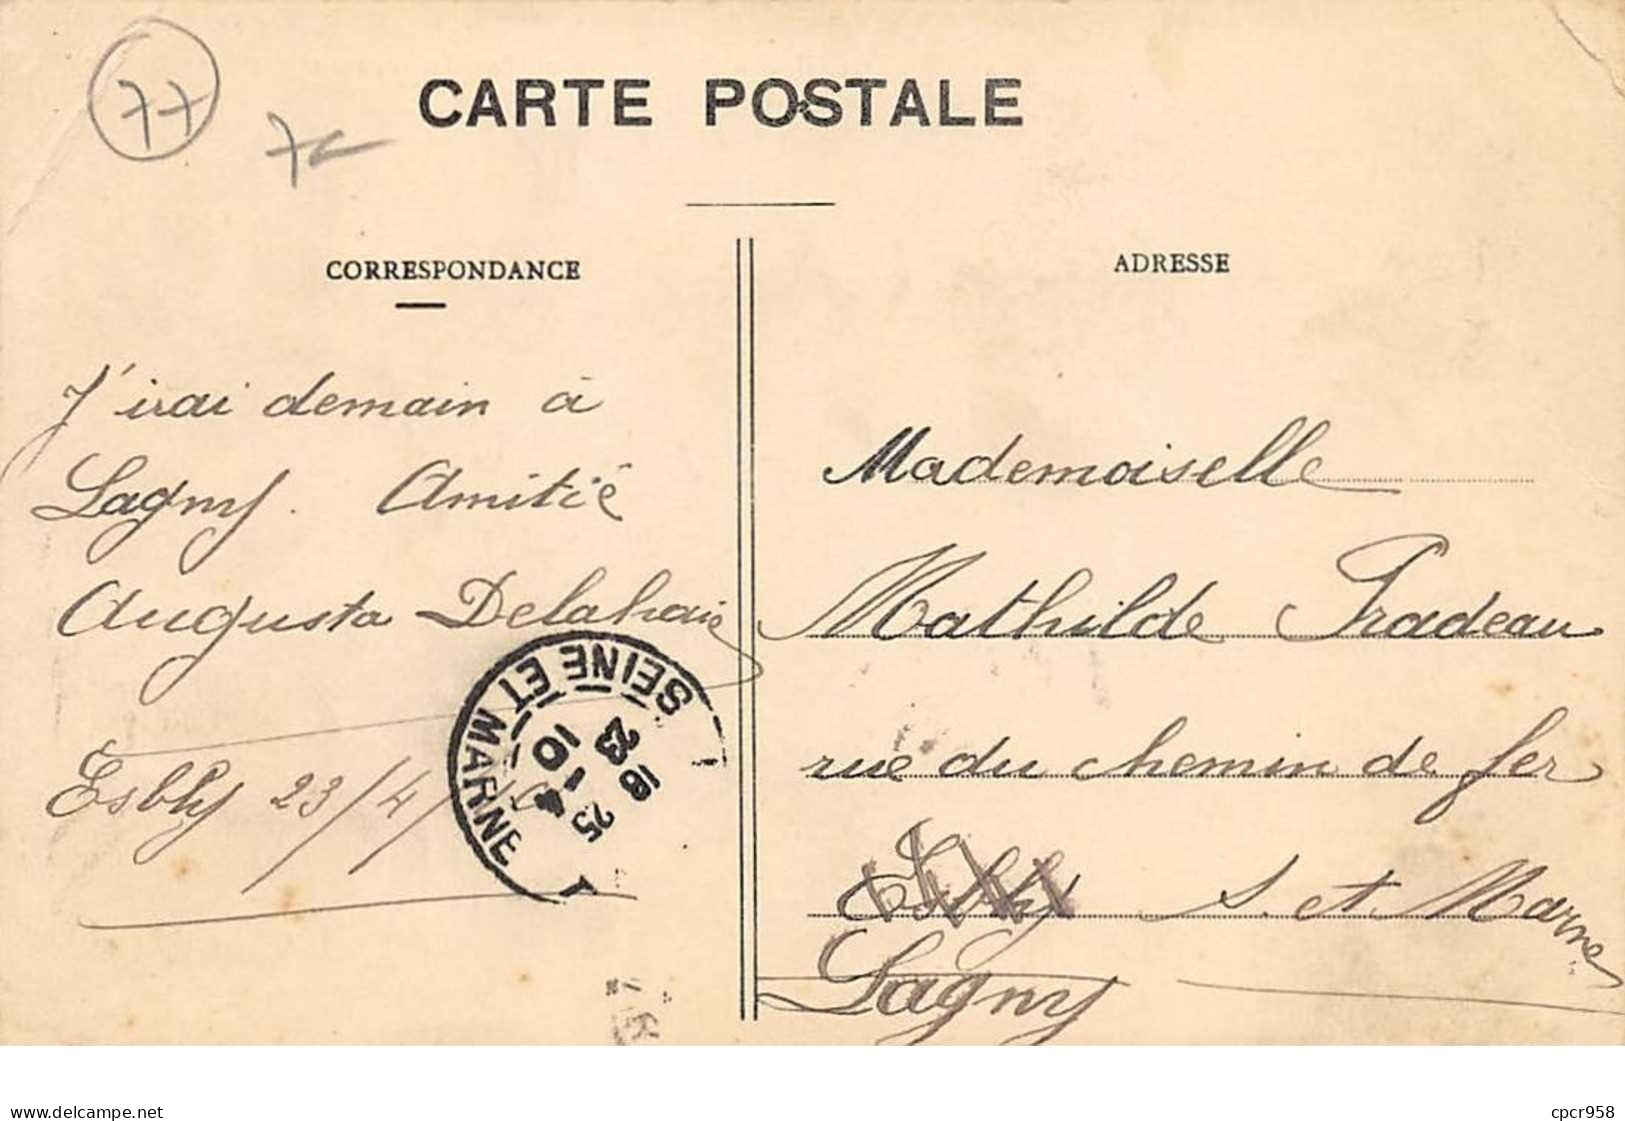 77
CARTE POSTALE
CORRESPONDANCE
J'irai demain à
Lagny. Amitié
Augusta Delahaie
Esbly 23/4/
SEINE ET MARNE
18 25
23 -4
10
ADRESSE
Mademoiselle
Mathilde Pradeau
rue du chemin de fer
Esbly S. et Marne
Lagny
www.delcampe.net
cpcr958